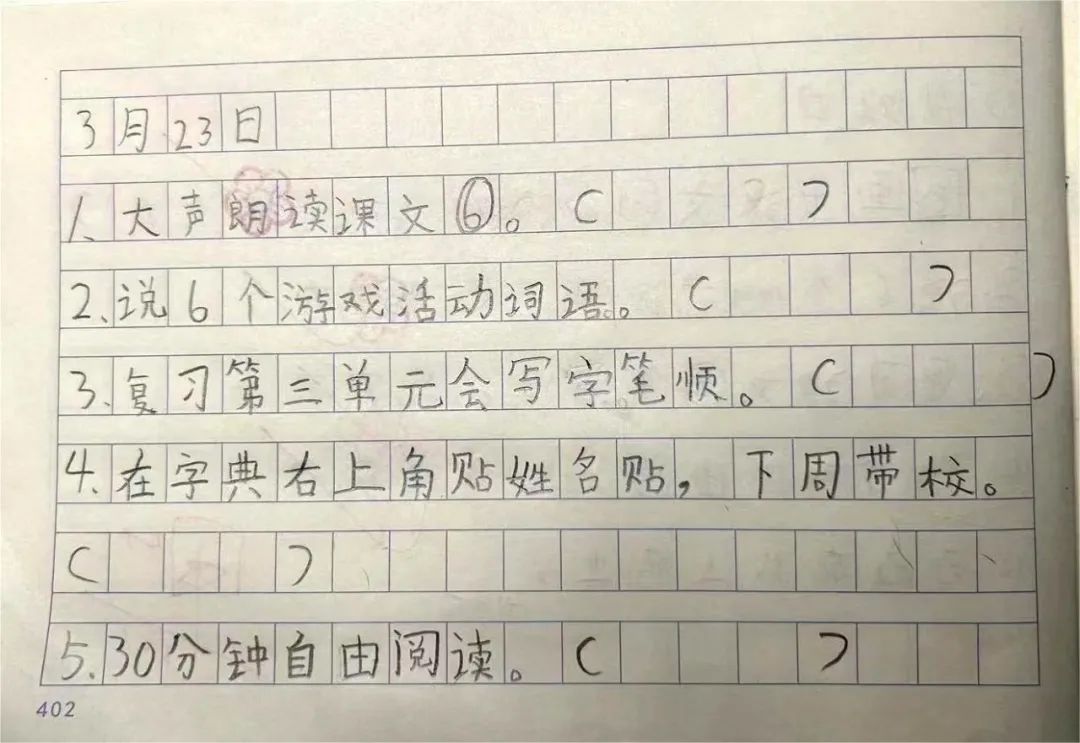 3月23日
1.大声朗读课文⑥。（ ）
2.说6个游戏活动词语。（ ）
3.复习第三单元会写字笔顺。（ ）
4.在字典右上角贴姓名贴，下周带校。
（ ）
5.30分钟自由阅读。（ ）
402